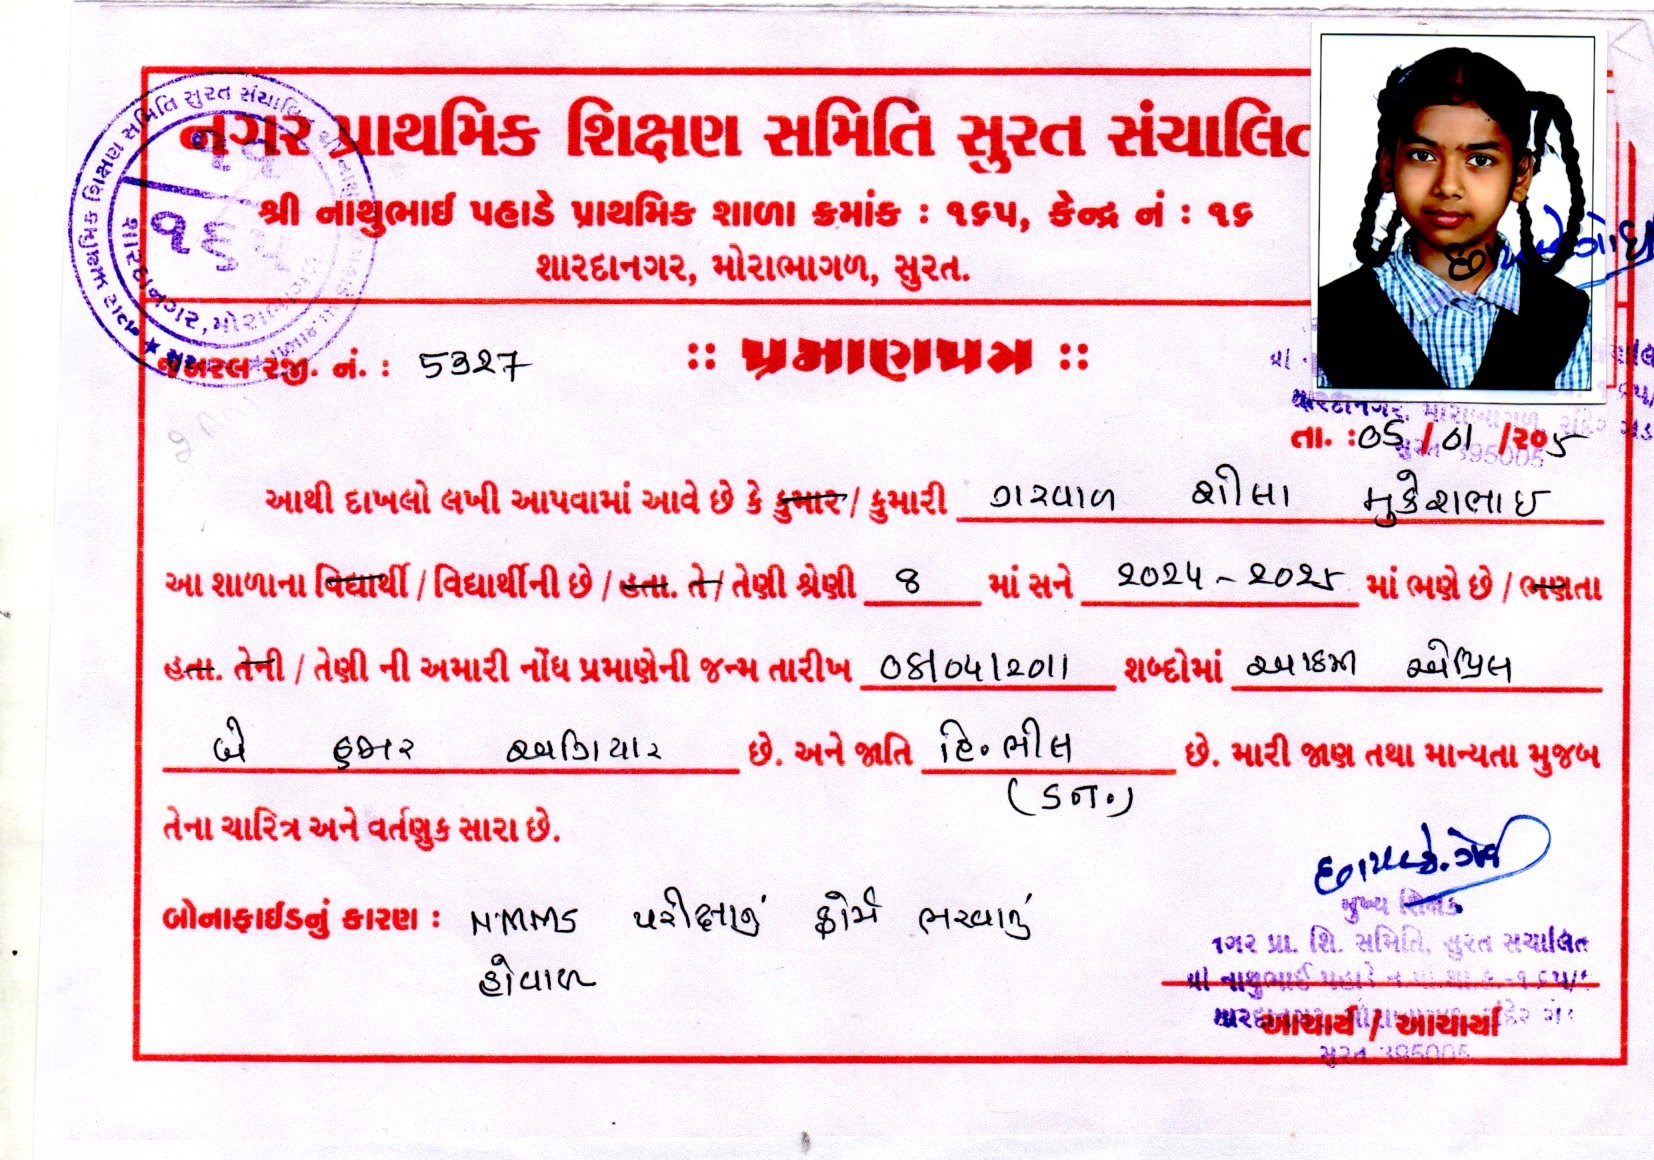 નગર પ્રાથમિક શિક્ષણ સમિતિ સુરત સંચાલિત
શ્રી નાથુભાઈ પહાડે પ્રાથમિક શાળા ક્રમાંક : ૧૬૫, કેન્દ્ર નં : ૧૬
શારદાનગર, મોરાભાગળ, સુરત.
જનરલ રજી. નં. : 5327
:: પ્રમાણપત્ર ::
તા. : 06 / 01 / ૨૦૨5
આથી દાખલો લખી આપવામાં આવે છે કે કુમાર / કુમારી ગરવાળ શીલા મુકેશભાઇ
આ શાળાના વિદ્યાર્થી / વિદ્યાર્થીની છે / હતા. તે / તેણી શ્રેણી 8 માં સને ૨૦૨૪ - ૨૦૨૫ માં ભણે છે / ભણતા
હતા. તેની / તેણી ની અમારી નોંધ પ્રમાણેની જન્મ તારીખ 08/04/2011 શબ્દોમાં આઠમી એપ્રિલ
બે હજાર અગિયાર છે. અને જાતિ હિ. ભીલ છે. મારી જાણ તથા માન્યતા મુજબ
તેના ચારિત્ર અને વર્તણુક સારા છે.
બોનાફાઈડનું કારણ : NMMS પરીક્ષાનું ફોર્મ ભરવાનું
હોવાથી
મુખ્ય શિક્ષક
નગર પ્રા. શિ. સમિતિ, સુરત સંચાલિત
આચાર્ય / આચાર્યા
સુરત 395005